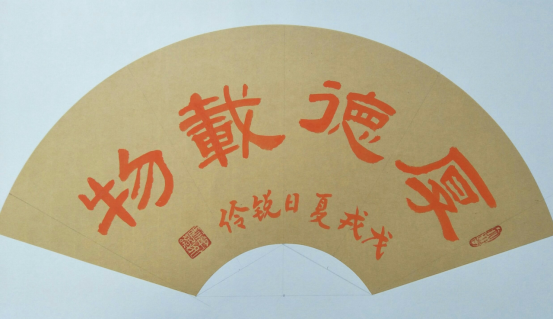 厚德載物
戊戌夏日锐伶